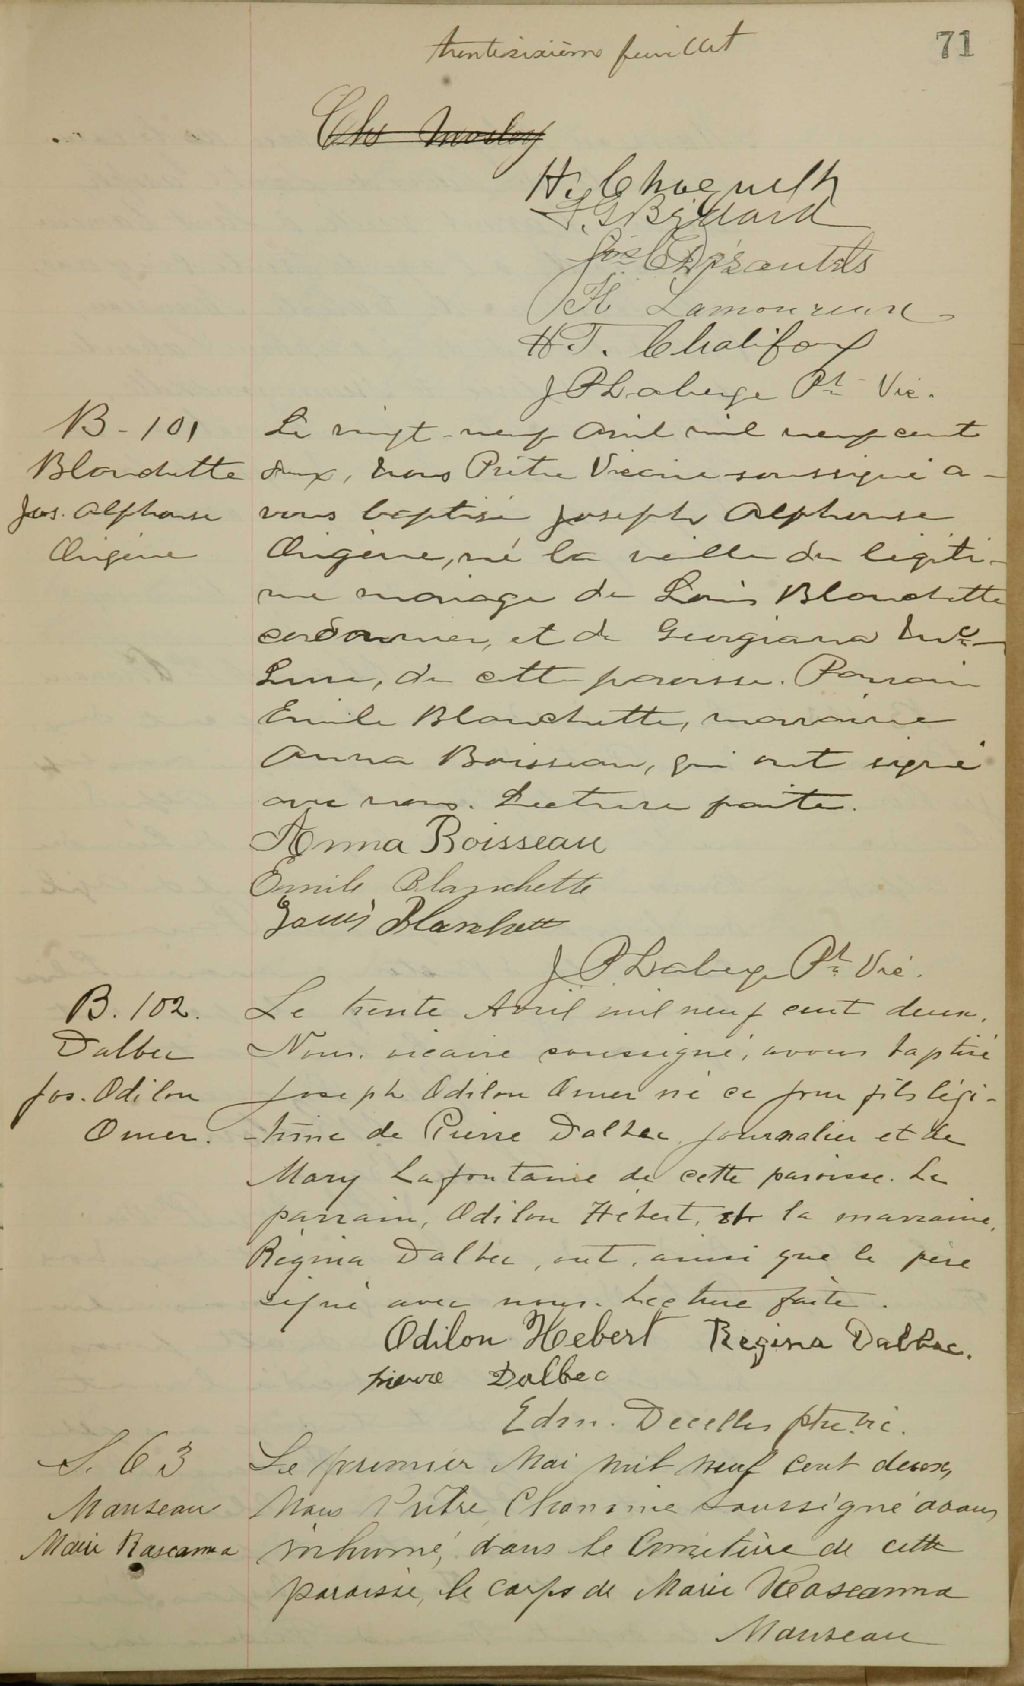 trentesixième feuillet
71
Chs Mosley
H. Choquette
Bédard
Jos C Désautels
H Lamoureux
H. T. Chalifoux
J P Laberge Pt Vic.
B-101
Blanchette
Jos. Alphonse
Origène
Le vingt-neuf Avril mil neuf cent
deux, Nous Prêtre Vicaire soussigné a-
vons baptisé Joseph Alphonse
Origène, né la veille du légiti-
me mariage de Louis Blanchette
cordonnier, et de Georgiana
de cette paroisse. Parrain
Emile Blanchette, marraine
Anna Boisseau, qui ont signé
avec nous. Lecture faite.
Anna Boisseau
Emile Blanchette
Louis Blanchette
J P Laberge Pt Vic.
B. 102.
Dalbec
Jos. Odilon
Omer.
Le trente Avril mil neuf cent deux.
Nous, vicaire soussigné, avons baptisé
Joseph Odilon Omer né ce jour fils légi-
-time de Pierre Dalbec, journalier et de
Mary Lafontaine de cette paroisse. Le
parrain, Odilon Hébert, et la marraine,
Régina Dalbec, ont, ainsi que le père
signé avec nous. Lecture faite.
Odilon Hebert Regina Dalbec.
Pierre Dalbec
Edm. Decelles ptre. vic.
S. 63
Manseau
Marie Roseanna
Le premier Mai mil neuf cent deux,
Nous Prêtre, Chanoine soussigné avons
inhumé, dans le Cimetière de cette
paroisse, le corps de Marie Roseanna
Manseau